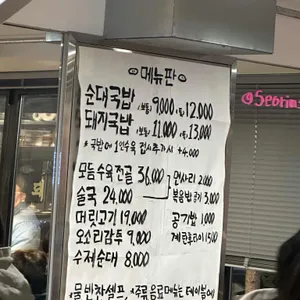 메뉴판
순대국밥 (보통) 9,000 (특) 12,000
돼지국밥 (보통) 11,000 (특) 13,000
* 국밥에 1인수육 접시추가시 +4.000
모듬수육전골 36,000
술국 24,000
머릿고기 19,000
오소리감투 9,000
수제순대 8,000
면사리 2,000
볶음밥 3,000
공기밥 1,000
계란후라이 1,500
*물, 반찬 셀프, *주류, 음료 메뉴는 테이블에
@Seoris